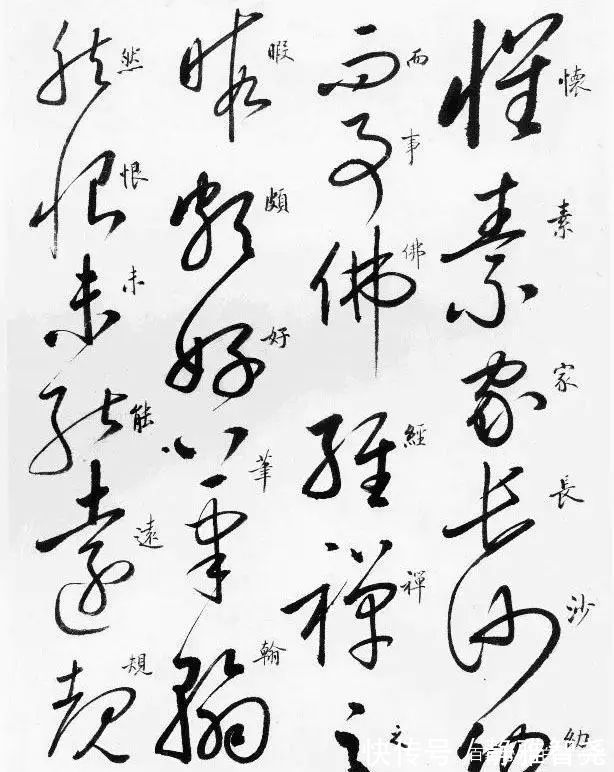 懷素家長沙幼
而事佛經禪之
暇頗好筆翰
然恨未能遠覩
快传号